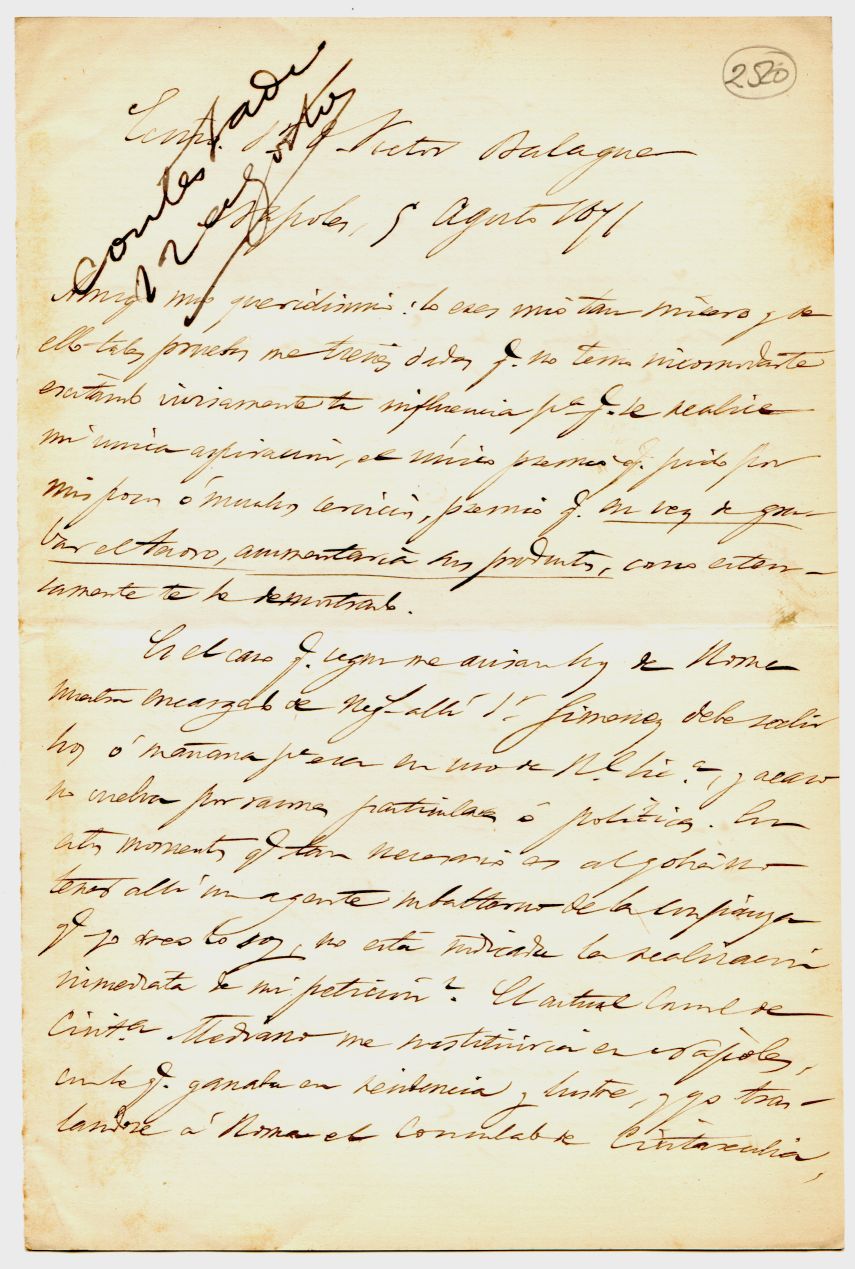 2520
contestada
12 agosto
Excmo. Sr. D. Victor Balaguer
Napoles, 5 Agosto 1871
Amigo mio queridisimo: lo eres mio tan sincero y de
ello tales pruebas me tienes dadas q. no temo incomodarte
escitando vivisamente tu influencia pª q. se realice
mi unica aspiracion, el único premio q. pido por
mis pocos ó muchos servicios, premio q. en vez de gra-
var el tesoro, aumentaria sus productos, como esten-
samente te he demostrado.
Es el caso q. segun me avisan hoy de Roma
nuestro encargado de Neg. allí Sr. Gimenez debe salir
hoy ó mañana pª esa en uso de Rl. licª, y acaso
no vuelva por razones particulares ó políticas. En
estos momentos q. tan necesario es al gobierno
tener allí un agente subalterno de la confianza
q. yo creo le soy, no está indicada la realizacion
inmediata de mi peticion? El actual Consul de
Civitª Medrano me sustituiria en Nápoles,
con lo q. ganaba en residencia y lustre, y yo tras-
landose á Roma el Consulado de Civitavechia,